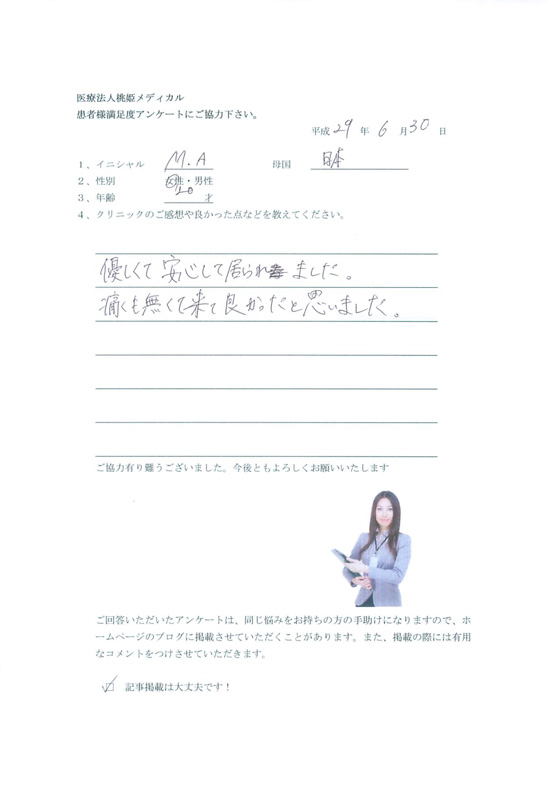 医療法人桃姫メディカル
患者様満足度アンケートにご協力下さい。
平成 29 年 6 月 30 日
1、イニシャル M.A 母国 日本
2、性別 女性・男性
3、年齢 20 才
4、クリニックのご感想や良かった点などを教えてください。
優しくて安心して居られました。
痛くも無くて来て良かっただと思いました。
ご協力有り難うございました。今後ともよろしくお願いいたします
ご回答いただいたアンケートは、同じ悩みをお持ちの方の手助けになりますので、ホ
ームページのブログに掲載させていただくことがあります。また、掲載の際には有用
なコメントをつけさせていただきます。
☑ 記事掲載は大丈夫です！